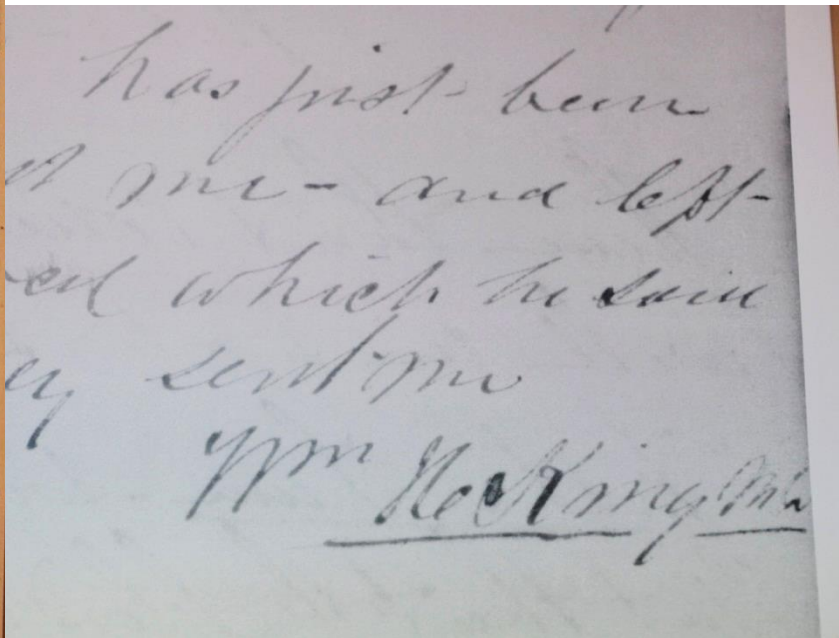 has just been
me - and left
which he said
sent me
Wm